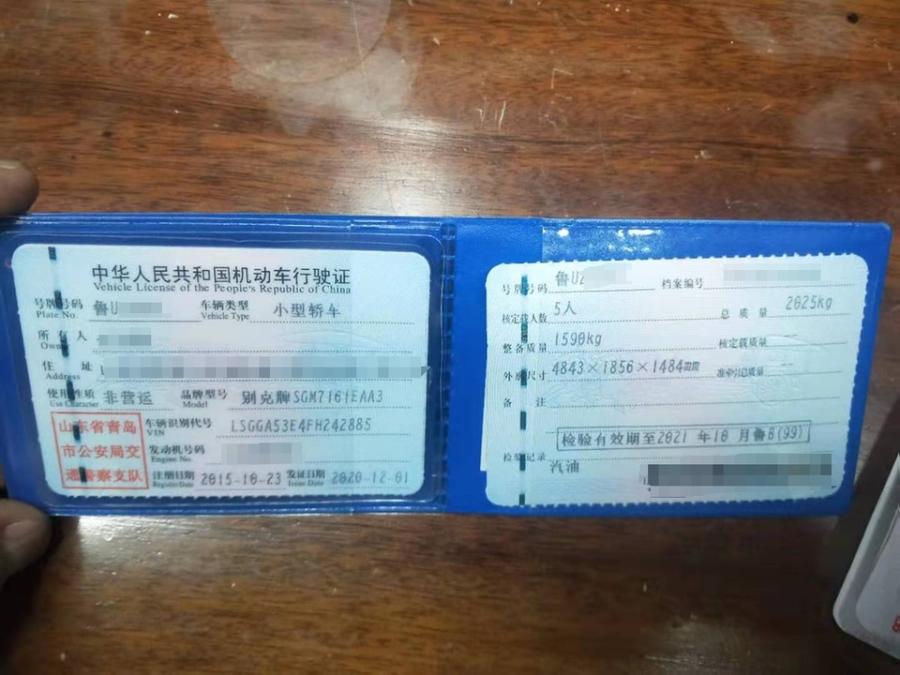 中华人民共和国机动车行驶证
Vehicle License of the People's Republic of China
号牌号码 鲁U 车辆类型 小型轿车
Plate No. Vehicle Type
所有人
Owner
住址
Address
使用性质 非营运 品牌型号 别克牌SGM7161EAA3
Use Character Model
山东省青岛
市公安局交
通警察支队
车辆识别代号 LSGGA53E4FH242885
VIN
发动机号码
Engine No.
注册日期 2015-10-23 发证日期 2020-12-01
Register Date Issue Date
号牌号码 鲁U 档案编号
核定载人数 5人 总质量 2025kg
整备质量 1590kg 核定载质量
外廓尺寸 4843×1856×1484mm 准牵引总质量
备注
检验有效期至2021年10月鲁B(99)
检验记录
汽油